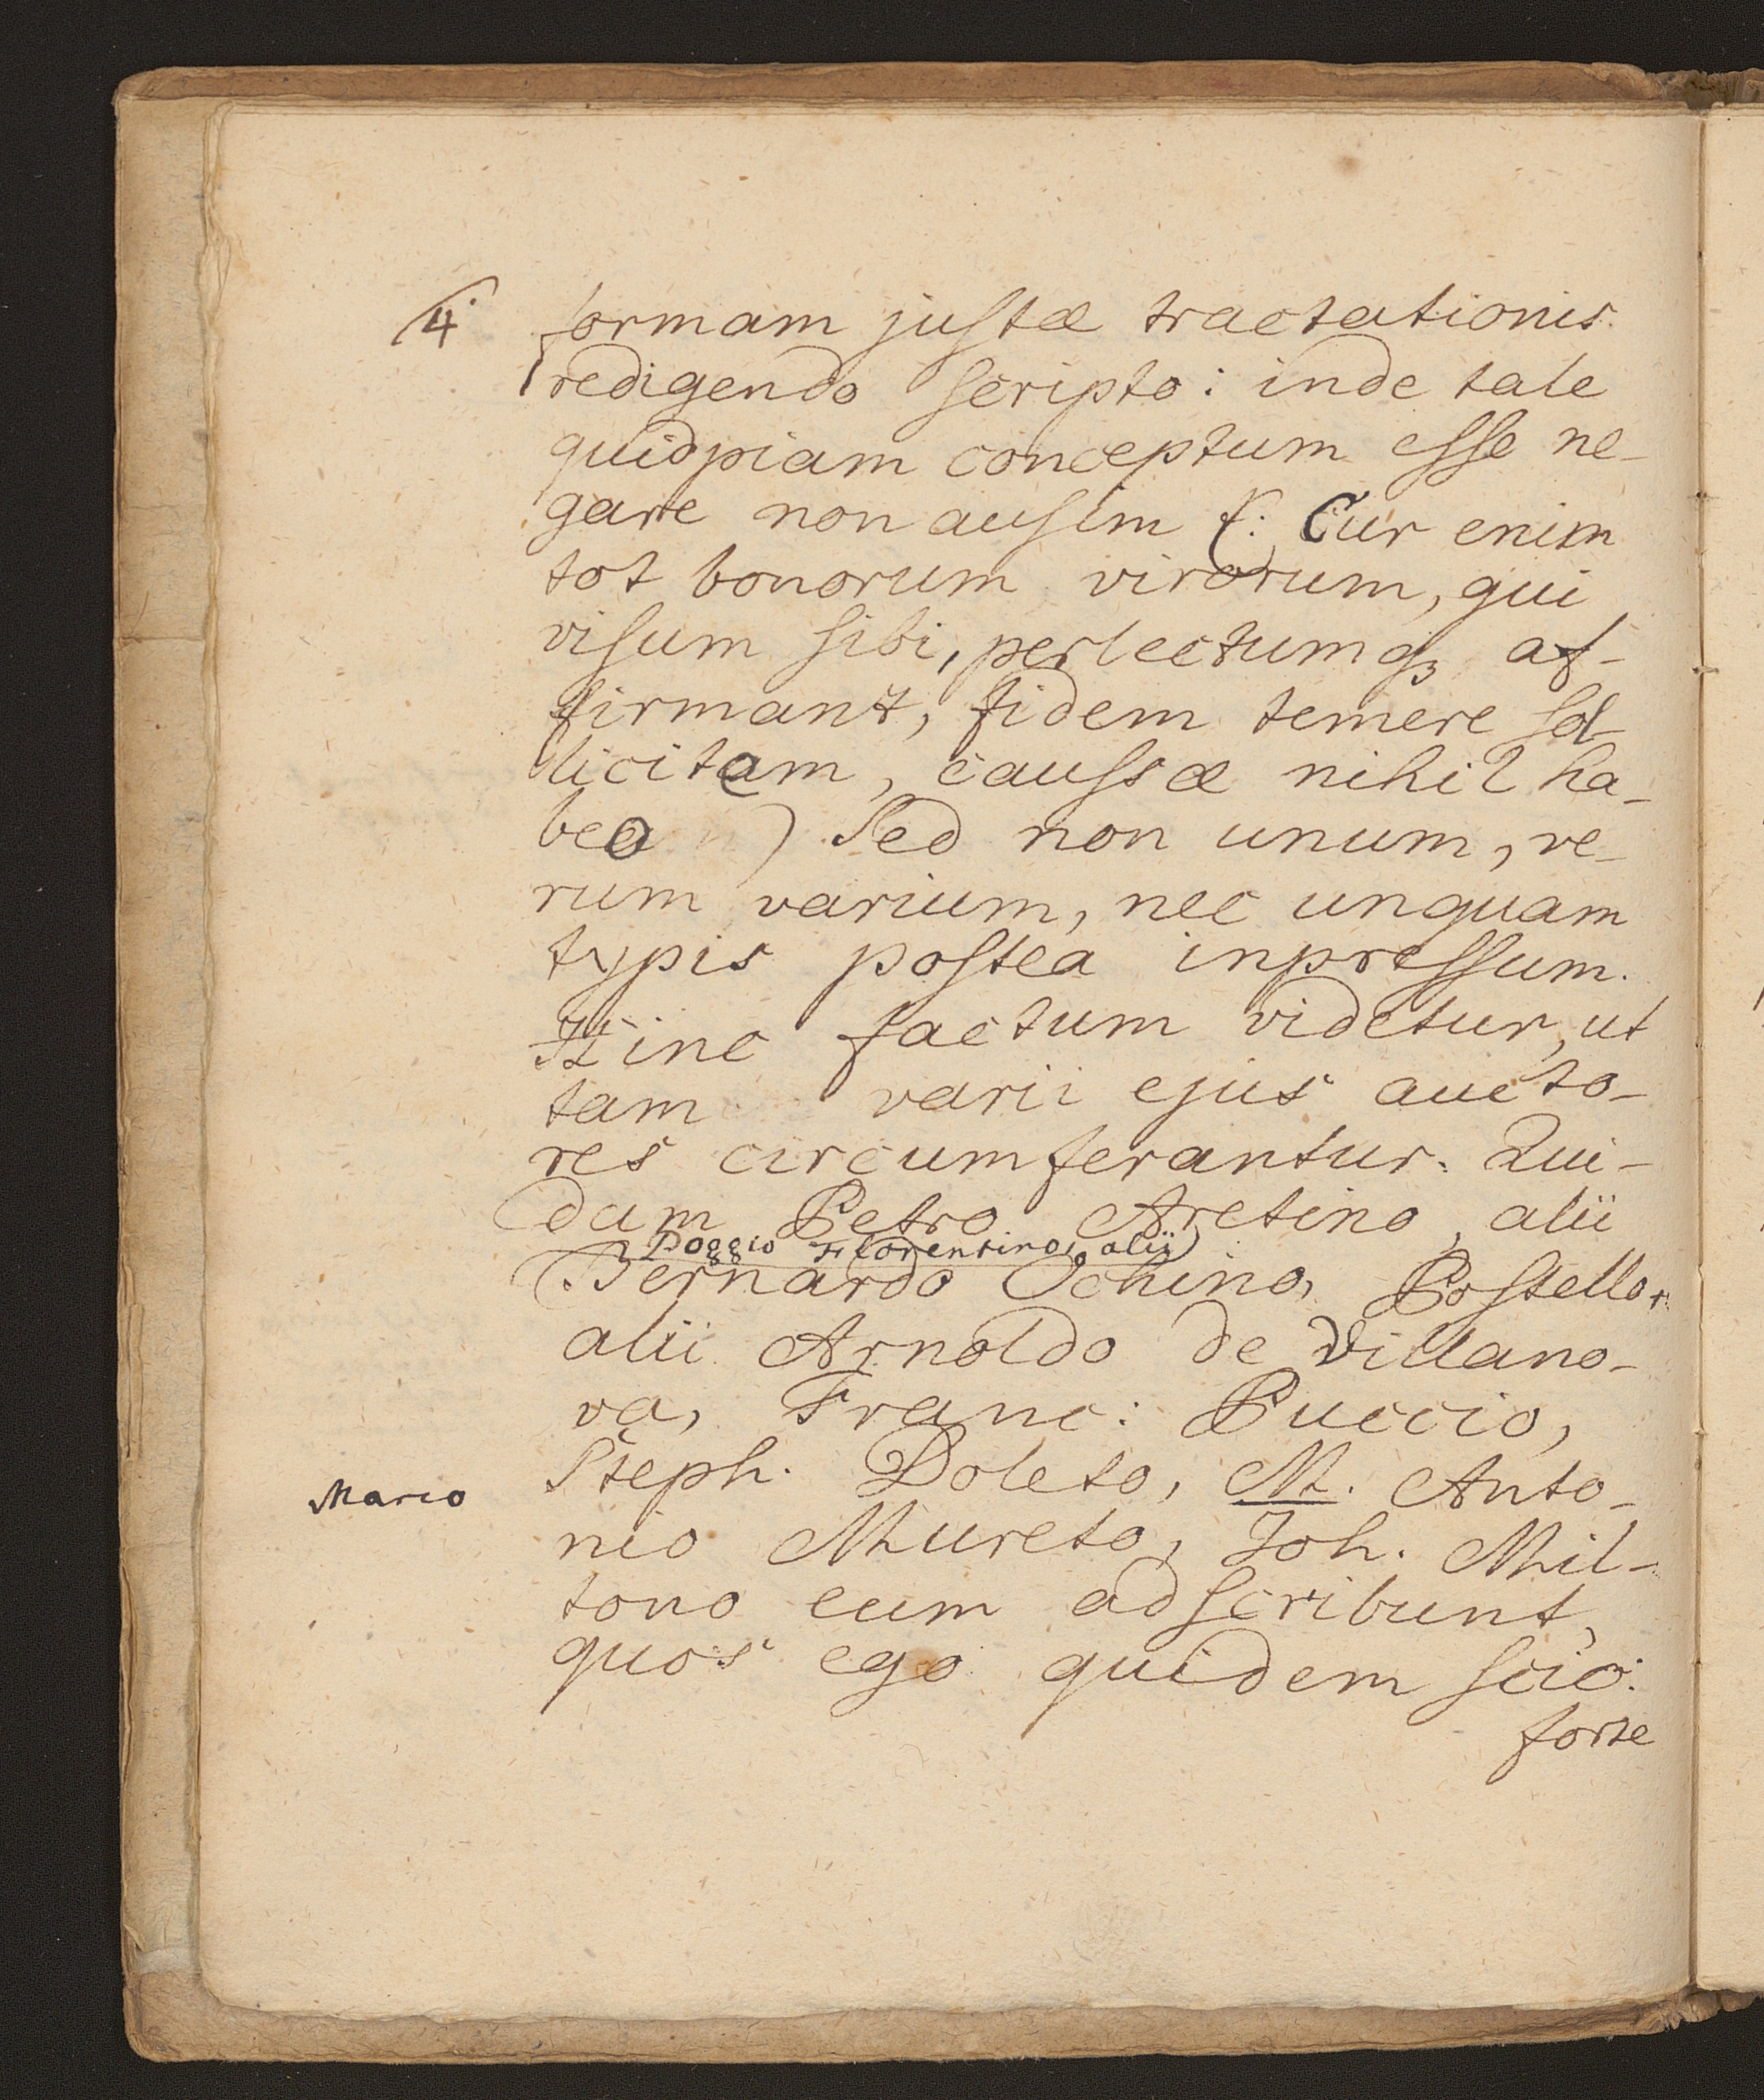 4
formam justæ tractationis
redigendo scripto: inde tale
quidpiam conceptum esse ne-
gare non ausim (: Cur enim
tot bonorum virorum, qui
visum sibi, perlectumqꝫ af-
firmant, fidem temere sol-
licitem, caussæ nihil ha-
beo ) Sed non unum, ve-
rum varium, nec unquam
typis postea inpressum.
Hinc factum videtur, ut
tam varii ejus aucto-
res circumferantur. Qui-
dam Petro Aretino, alii
Poggio Florentino, alii
Bernardo Ochino, Postello,
alii Arnoldo de Villano-
va, Franc: Puccio,
Steph. Doleto, M. Anto-
Marco
nio Mureto, Joh. Mil-
tono eum adscribunt,
quos ego quidem scio:
forte